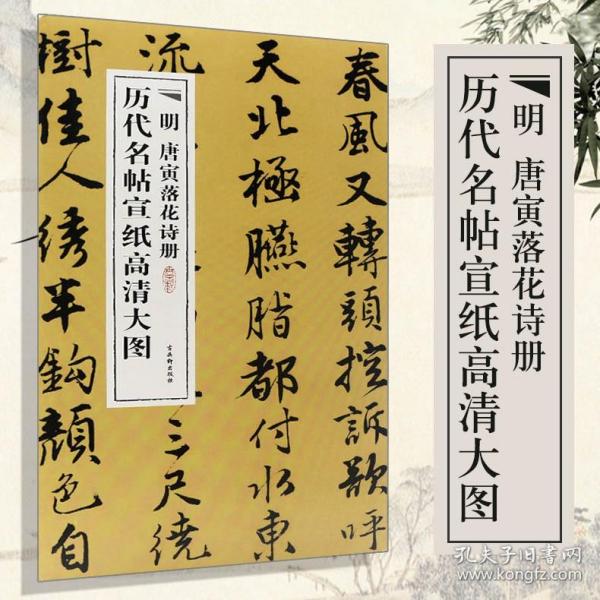 春風又轉頭控訴歌呼
天北極臙脂都付水東
流
三尺繞
樹佳人绣半鈎顏色自
明 唐寅落花诗册
历代名帖宣纸高清大图
古吴轩出版社
明 唐寅落花诗册
历代名帖宣纸高清大图
孔夫子旧书网
www.kongfz.com